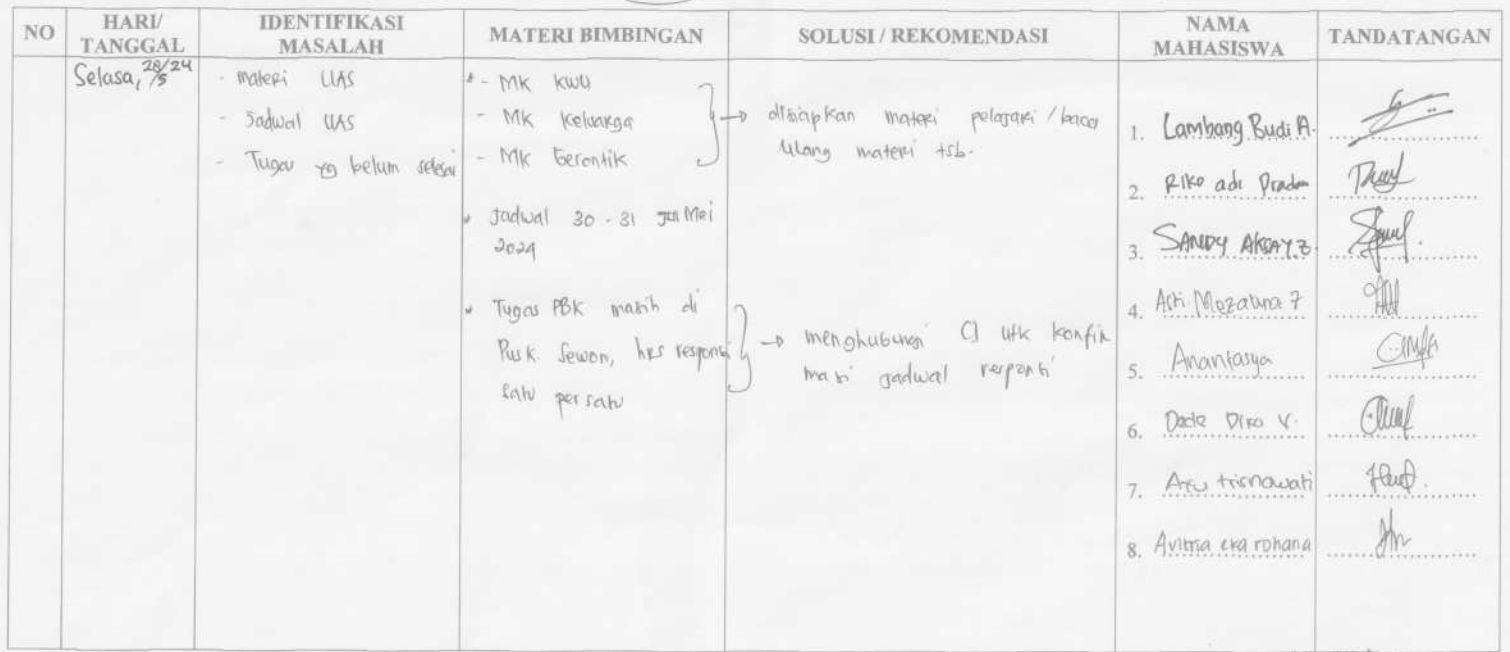 NO
HARI/
TANGGAL
IDENTIFIKASI
MASALAH
MATERI BIMBINGAN
SOLUSI / REKOMENDASI
NAMA
MAHASISWA
TANDATANGAN
Selasa, 28/5/24
- materi UAS
- Jadwal UAS
- Tugas yg belum selesai
* - MK KWU
- MK Keluarga
- MK Gerontik
* Jadwal 30 - 31 Mei
2024
* Tugas PBK masih di
Pusk. Sewon, hrs responsi
satu persatu
→ disiapkan materi pelajari / baca
ulang materi tsb.
→ menghubungi CI utk konfir
masi jadwal responsi
1. Lambang Budi A.
2. Riko adi
3. SANDY
4. Asti
5. Anantasya
6. Dade V.
7. Ayu trisnawati
8. eka rohana